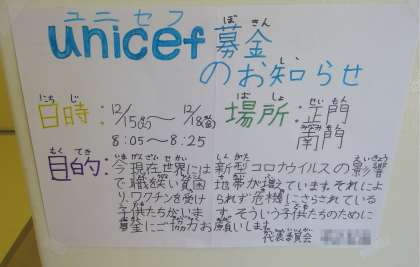 ユニセフ
unicef 募金
のお知らせ
日時:12/15(火)〜12/18(金) 場所:正門
8:05〜8:25 南門
目的:今現在世界には新型コロナウイルスの影響
で職を失い貧困地帯が増えています。それによ
り、ワクチンを受けられず危機にさらされている
子供たちがいます。そういう子供たちのために
募金にご協力お願いします。
代表委員会